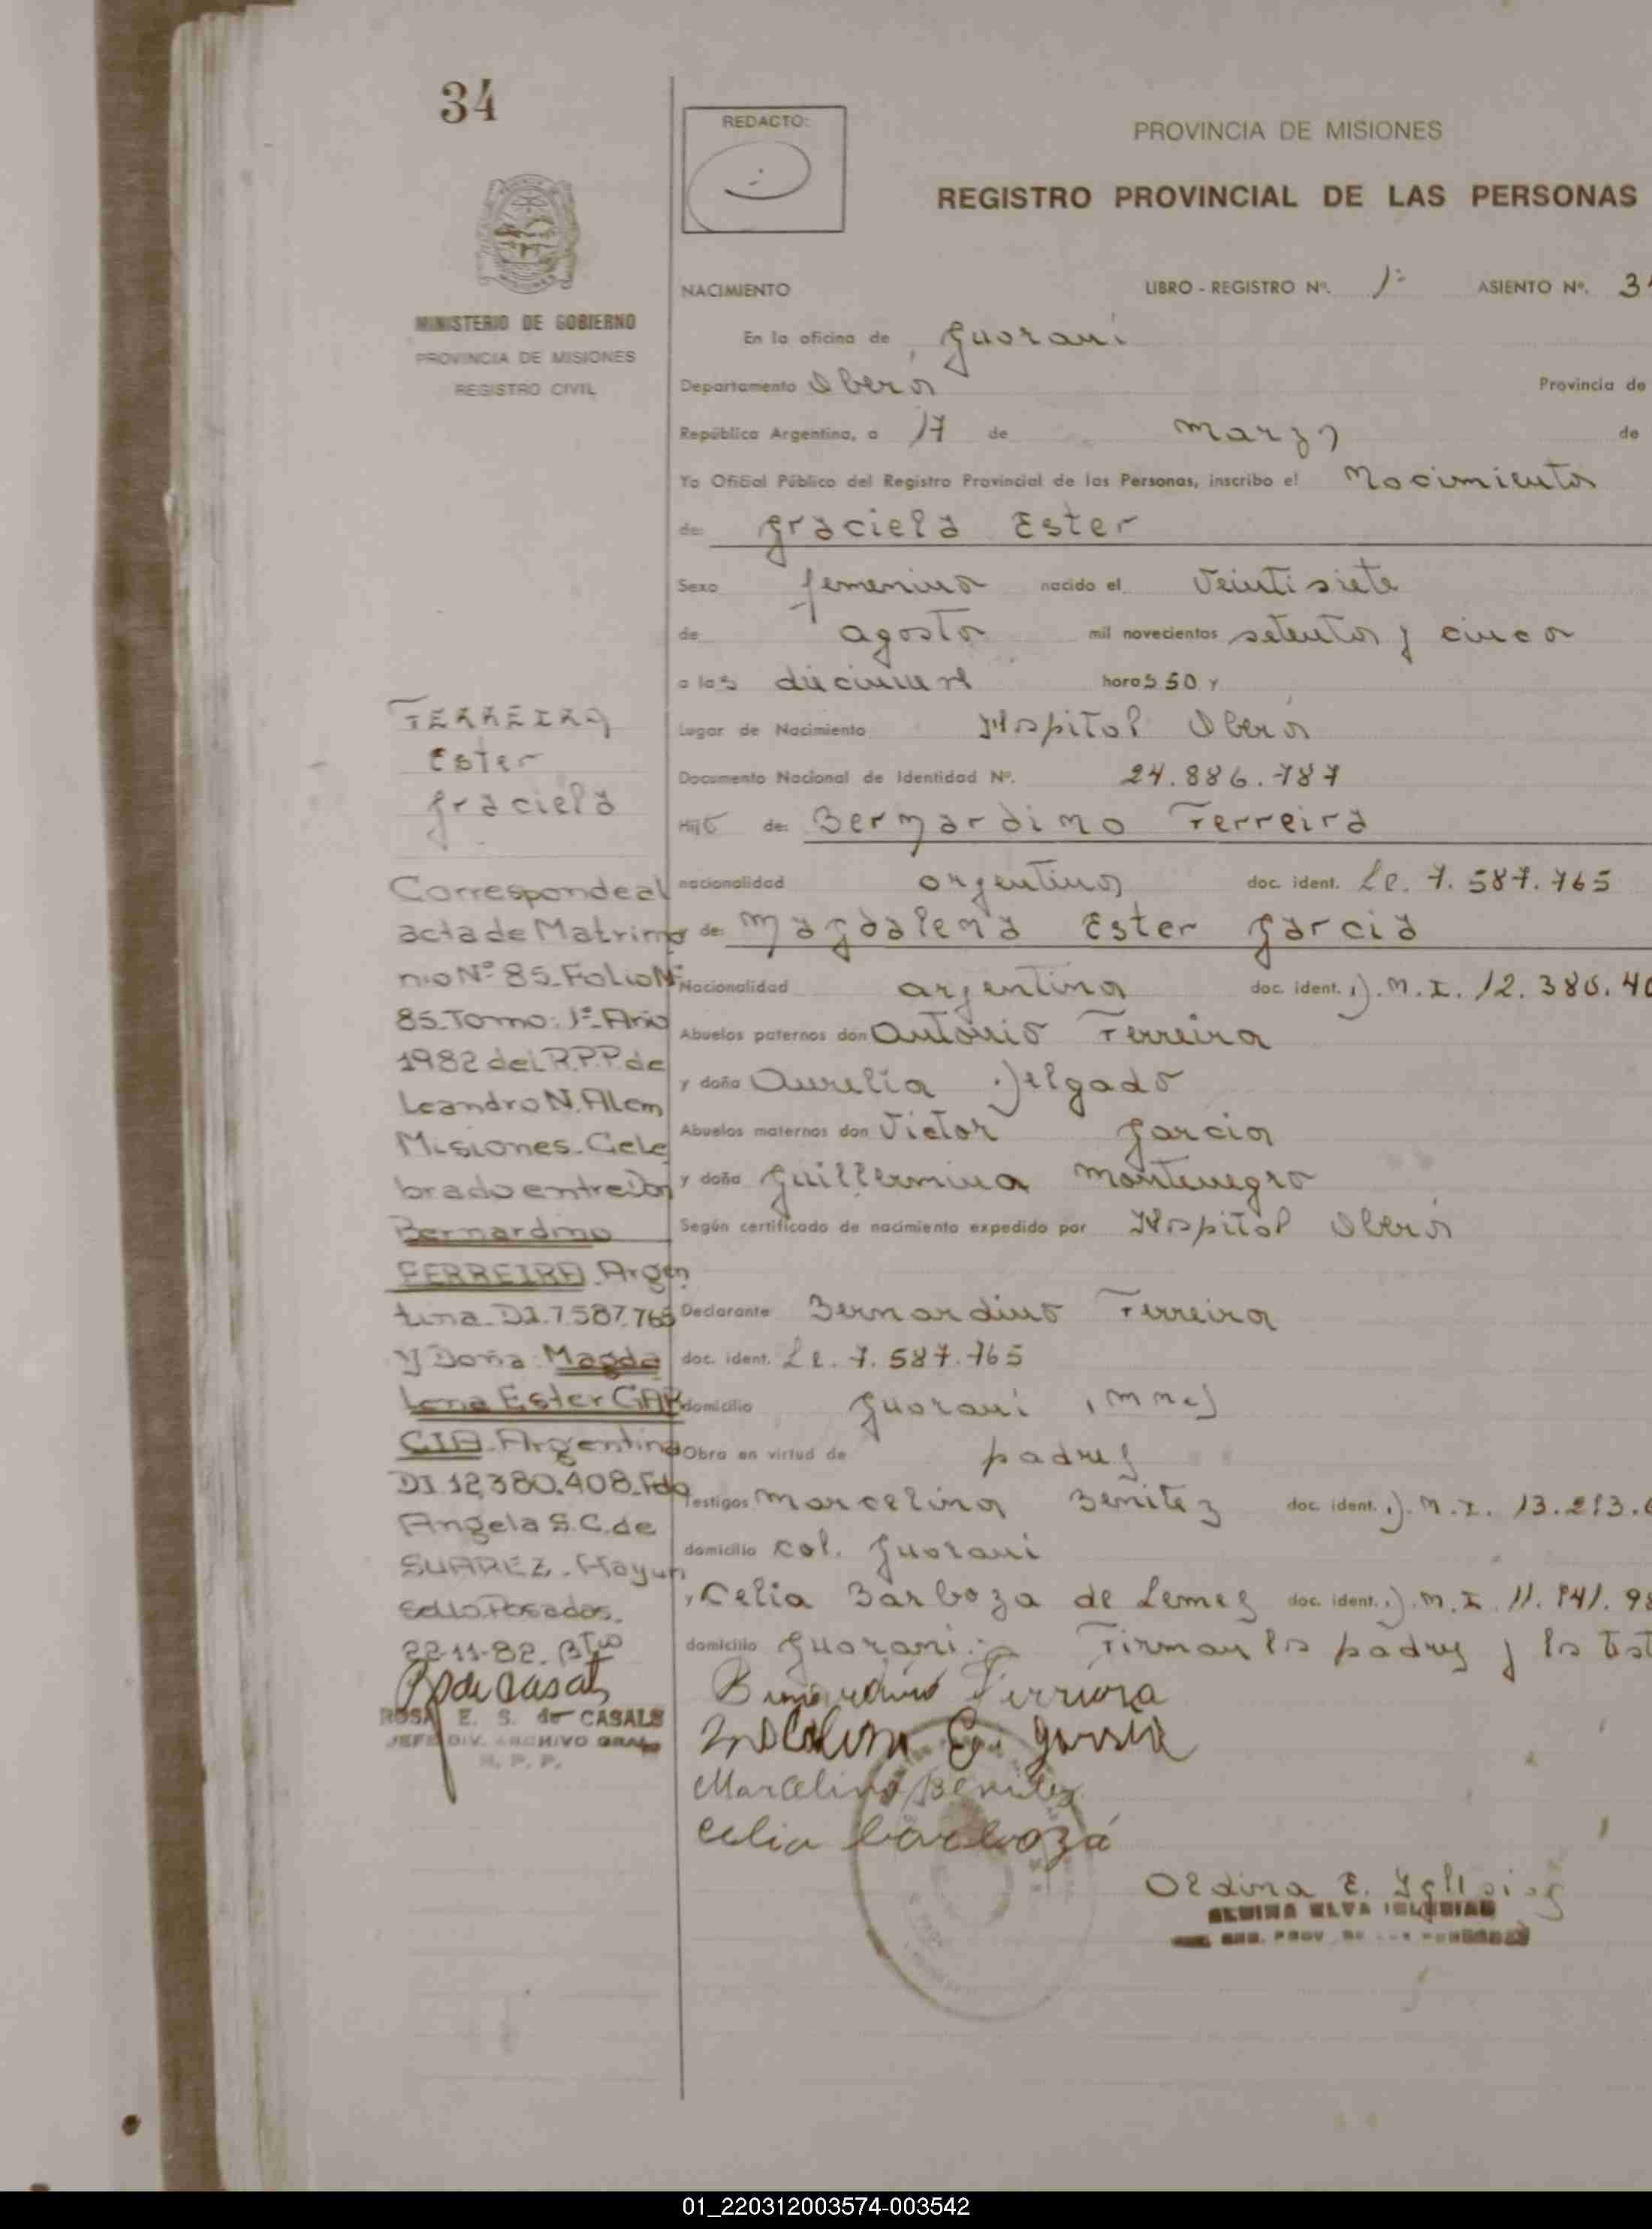 34
REDACTO:
PROVINCIA DE MISIONES
REGISTRO PROVINCIAL DE LAS PERSONAS
MINISTERIO DE GOBIERNO
PROVINCIA DE MISIONES
REGISTRO CIVIL
NACIMIENTO LIBRO - REGISTRO Nº. 1º ASIENTO Nº. 3
En la oficina de Guarani
Departamento Oberá Provincia de
República Argentina, a 17 de Marzo de
Yo Oficial Público del Registro Provincial de las Personas, inscribo el Nacimiento
de: Graciela Ester
Sexo femenino nacido el Veintisiete
de agosto mil novecientos setenta y cinco
a las diecinueve horas 50 y
Lugar de Nacimiento Hospital Oberá
Documento Nacional de Identidad Nº. 24.886.787
Hijo de: Bernardino Ferreira
nacionalidad argentina doc. ident. L.e. 7.587.765
de: Magdalena Ester Garcia
Nacionalidad argentina doc. ident. D.N.I. 12.380.40
Abuelos paternos don Antonio Ferreira
y doña Aurelia Delgado
Abuelos maternos don Victor Garcia
y doña Guillermina Montenegro
Según certificado de nacimiento expedido por Hospital Oberá
Declarante Bernardino Ferreira
doc. ident. L.e. 7.587.765
domicilio Guarani (Mnes)
Obra en virtud de padres
Testigos Marcelina Benitez doc. ident. D.N.I. 13.213.
domicilio Col. Guarani
y Celia Barboza de Lemes doc. ident. D.N.I. 11.141.98
domicilio Guarani. Firman los padres y los Test
Bernardino Ferreira
E. Garcia
Marcelina Benitez
Celia barboza
Oldina E. Iglesias
FERREIRA
Ester
Graciela
Corresponde al
acta de Matrimo
nio Nº 85. Folio Nº
85. Tomo: 1º Año
1982 del R.P.P. de
Leandro N. Alem
Misiones. Cele
brado entre Don
Bernardino
FERREIRA. Argen
tina. DI. 7.587.765
y Doña: Magda
lena Ester GAR
CIA. Argentina
DI 12.380.408. Fdo
Angela S.C. de
SUAREZ. Hay un
Sello. Posadas.
22-11-82.
ROSA E. S. de CASALS
JEFE DIV. ARCHIVO GRAL.
R. P. P.
01_220312003574-003542